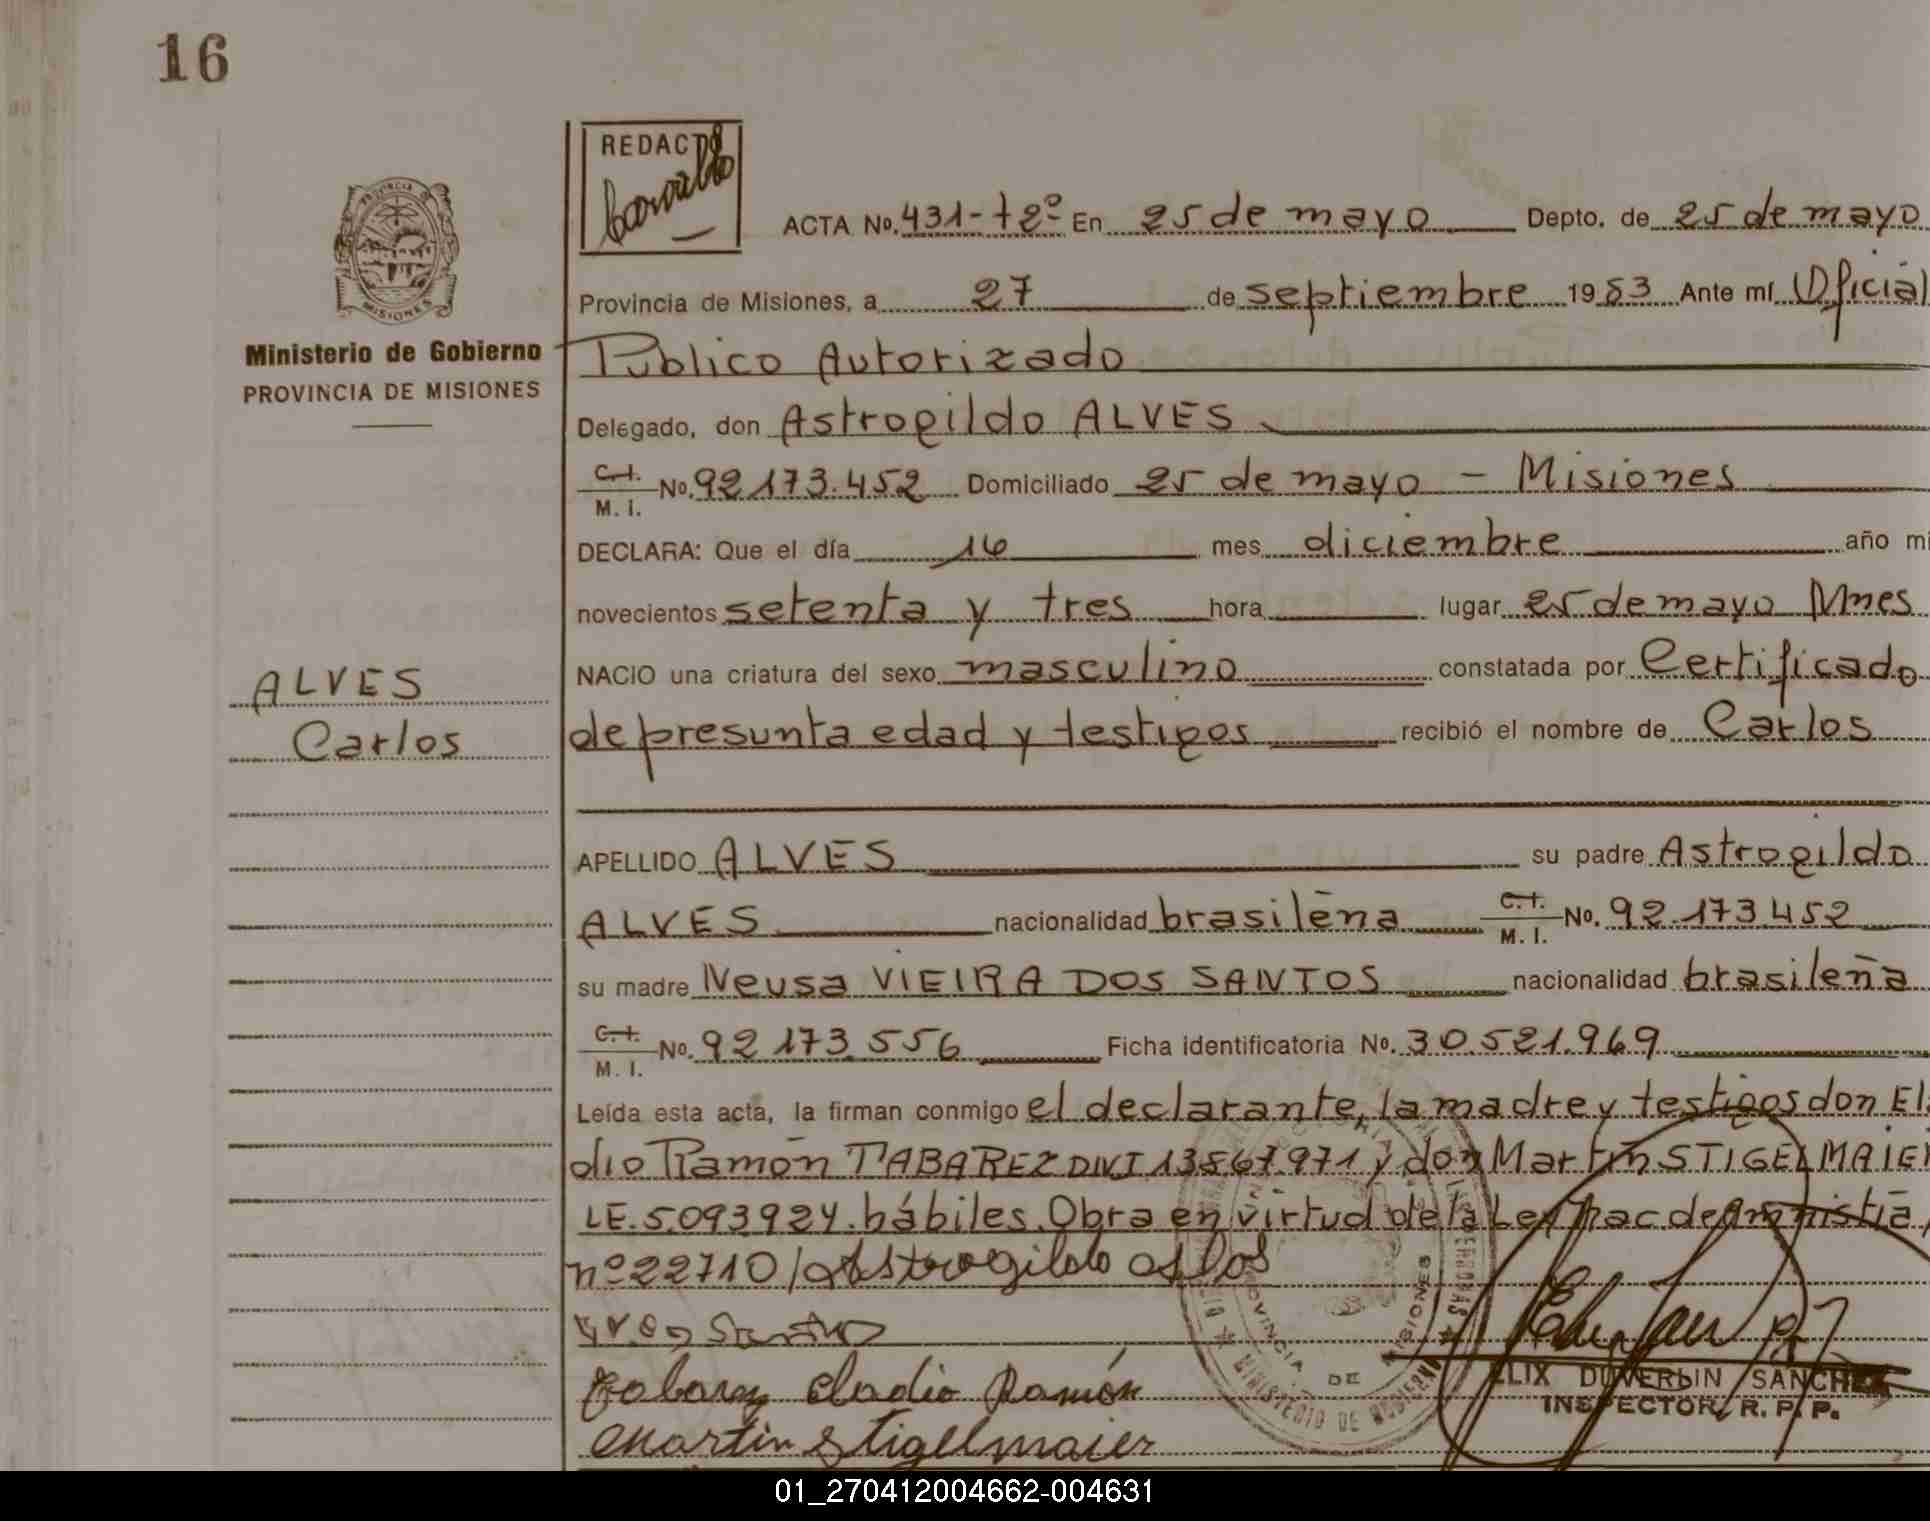 16
REDACTÓ
ACTA No. 431-Tº2º En 25 de mayo Depto. de 25 de mayo
Provincia de Misiones, a 27 de septiembre 1983 Ante mí Oficial
PROVINCIA DE MISIONES
Ministerio de Gobierno
PROVINCIA DE MISIONES
Público Autorizado
Delegado, don Astrogildo ALVES
C.I. M. I. No. 92.173.452 Domiciliado 25 de mayo - Misiones
DECLARA: Que el día 16 mes diciembre año mi
novecientos setenta y tres hora lugar 25 de mayo Mnes
NACIO una criatura del sexo masculino constatada por Certificado
ALVES
Carlos
de presunta edad y testigos recibió el nombre de Carlos
APELLIDO ALVES su padre Astrogildo
ALVES nacionalidad brasileña C.I. M. I. No. 92.173.452
su madre Neusa VIEIRA DOS SANTOS nacionalidad brasileña
C.I. M. I. No. 92.173.556 Ficha identificatoria No. 30.521.969
Leída esta acta, la firman conmigo el declarante, la madre y testigos don El
dio Ramón TABAREZ DNI 13867971 y don Martín STIGELMAIE
LE.5.093.924. hábiles. Obra en virtud de la Ley Nac de Amnistía
nº 22710/Astrogildo
Tabarez Eladio Ramón
Martin Stigelmaier
PROVINCIA DE MISIONES
MINISTERIO DE GOBIERNO
ELIX DUVERLIN SANCHEZ
INSPECTOR R. P. P.
01_270412004662-004631